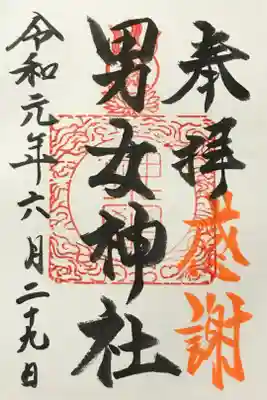 奉拝
感謝
男女神社
令和元年六月二十九日